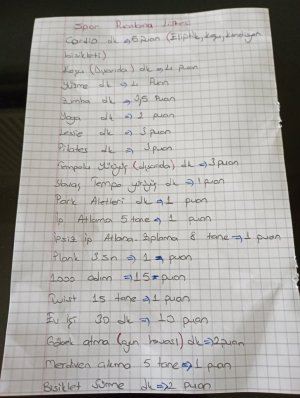 Spor Puanlama Listesi
Cardio dk ⇒ 5 puan (Eliptik, koşu, kondisyon
bisikleti)
Koşu (Dışarıda) dk ⇒ 4 puan
Yüzme dk ⇒ 4 Puan
Zumba dk ⇒ 3,5 Puan
Yoga dk ⇒ 2 puan
dk ⇒ 3 puan
Pilates dk ⇒ 3 puan
Tempolu yürüyüş (dışarıda) dk ⇒ 3 puan
Yavaş Tempo yürüyüş dk ⇒ 1 puan
Park Aletleri dk ⇒ 1 puan
İp Atlama 5 tane ⇒ 1 puan
İpsiz İp Atlama Zıplama 8 tane ⇒ 1 puan
Plank 3 sn ⇒ 1 puan
1000 adım ⇒ 15 puan
Twist 15 tane ⇒ 1 puan
Ev işi 30 dk ⇒ 10 puan
Göbek atma (oyun havası) dk ⇒ 2 puan
Merdiven çıkma 5 tane ⇒ 1 puan
Bisiklet Sürme dk ⇒ 2 puan